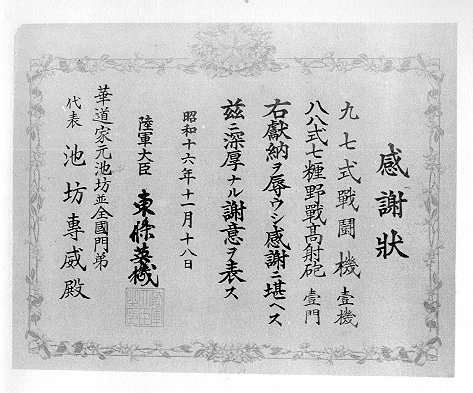 感謝狀
九七式戰鬪機 壹機
八八式七糎野戰高射砲 壹門
右獻納ヲ辱ウシ感謝ニ堪ヘス
玆ニ深厚ナル謝意ヲ表ス
昭和十六年十一月十八日
陸軍大臣 東條英機
華道家元池坊並全國門弟
代表 池坊專威殿